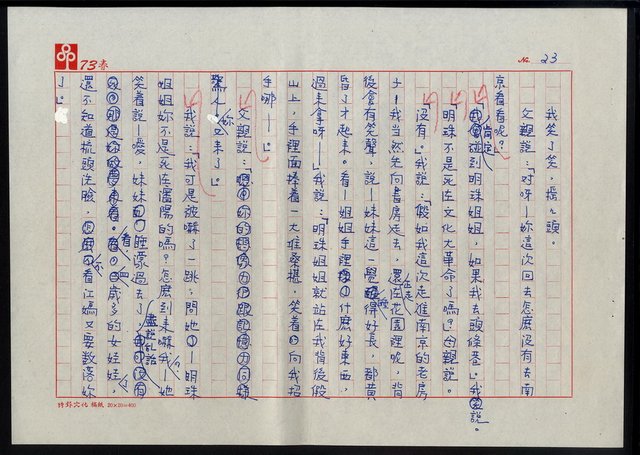 73春
No. 23
我笑了笑，搖了頭。
文親說：「对呀！妳這次回去怎麼沒有去南
京看看呢？」
「我肯定碰到明珠姐姐，如果我去頭條巷。」我說。
「明珠不是死在文化大革命了嗎？」母親說。
「沒有。」我說：「假如我這次走進南京的老房
子，我当然先向書房走去，還在花園裡呢，背
後會有笑聲，說！妹妹這一覺睡得好長，都黃
昏了才起來。看！姐姐手裡什麼好東西，
過來拿呀！」我說：「明珠姐姐就站在我背後假
山上，手裡面捧着一大堆桑椹，笑着向我招
手哪！」
文親說：「你的想像力
人。又來了。」
我說：「我可是被嚇了一跳，問她！明珠
姐姐妳不是死在瀋陽的嗎？怎麼到來嚇我！她
笑着說！噯，妹妹睡濛過去了，盡說乱話
歲多的女娃娃，
還不知道梳頭洗臉，你看江媽又要數落妳
了。」
特舒文化稿紙 20×20=400